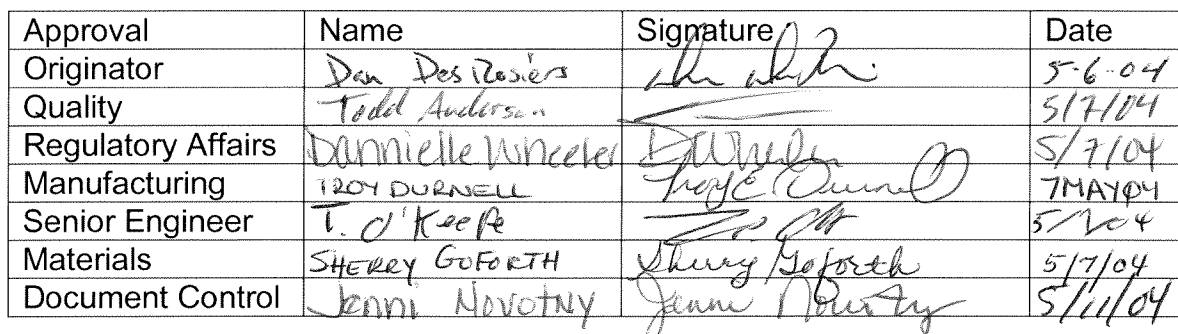 Approval Name Signature Date
Originator Dan DesRosiers 5-6-04
Quality Todd Anderson 5/7/04
Regulatory Affairs Dannielle Wheeler DWheeler 5/7/04
Manufacturing TROY DURNELL Troy E Durnell 7MAY04
Senior Engineer T. O'Keefe
Materials SHERRY GOFORTH Sherry Goforth 5/7/04
Document Control Jenni Novotny Jenni Novotny 5/11/04